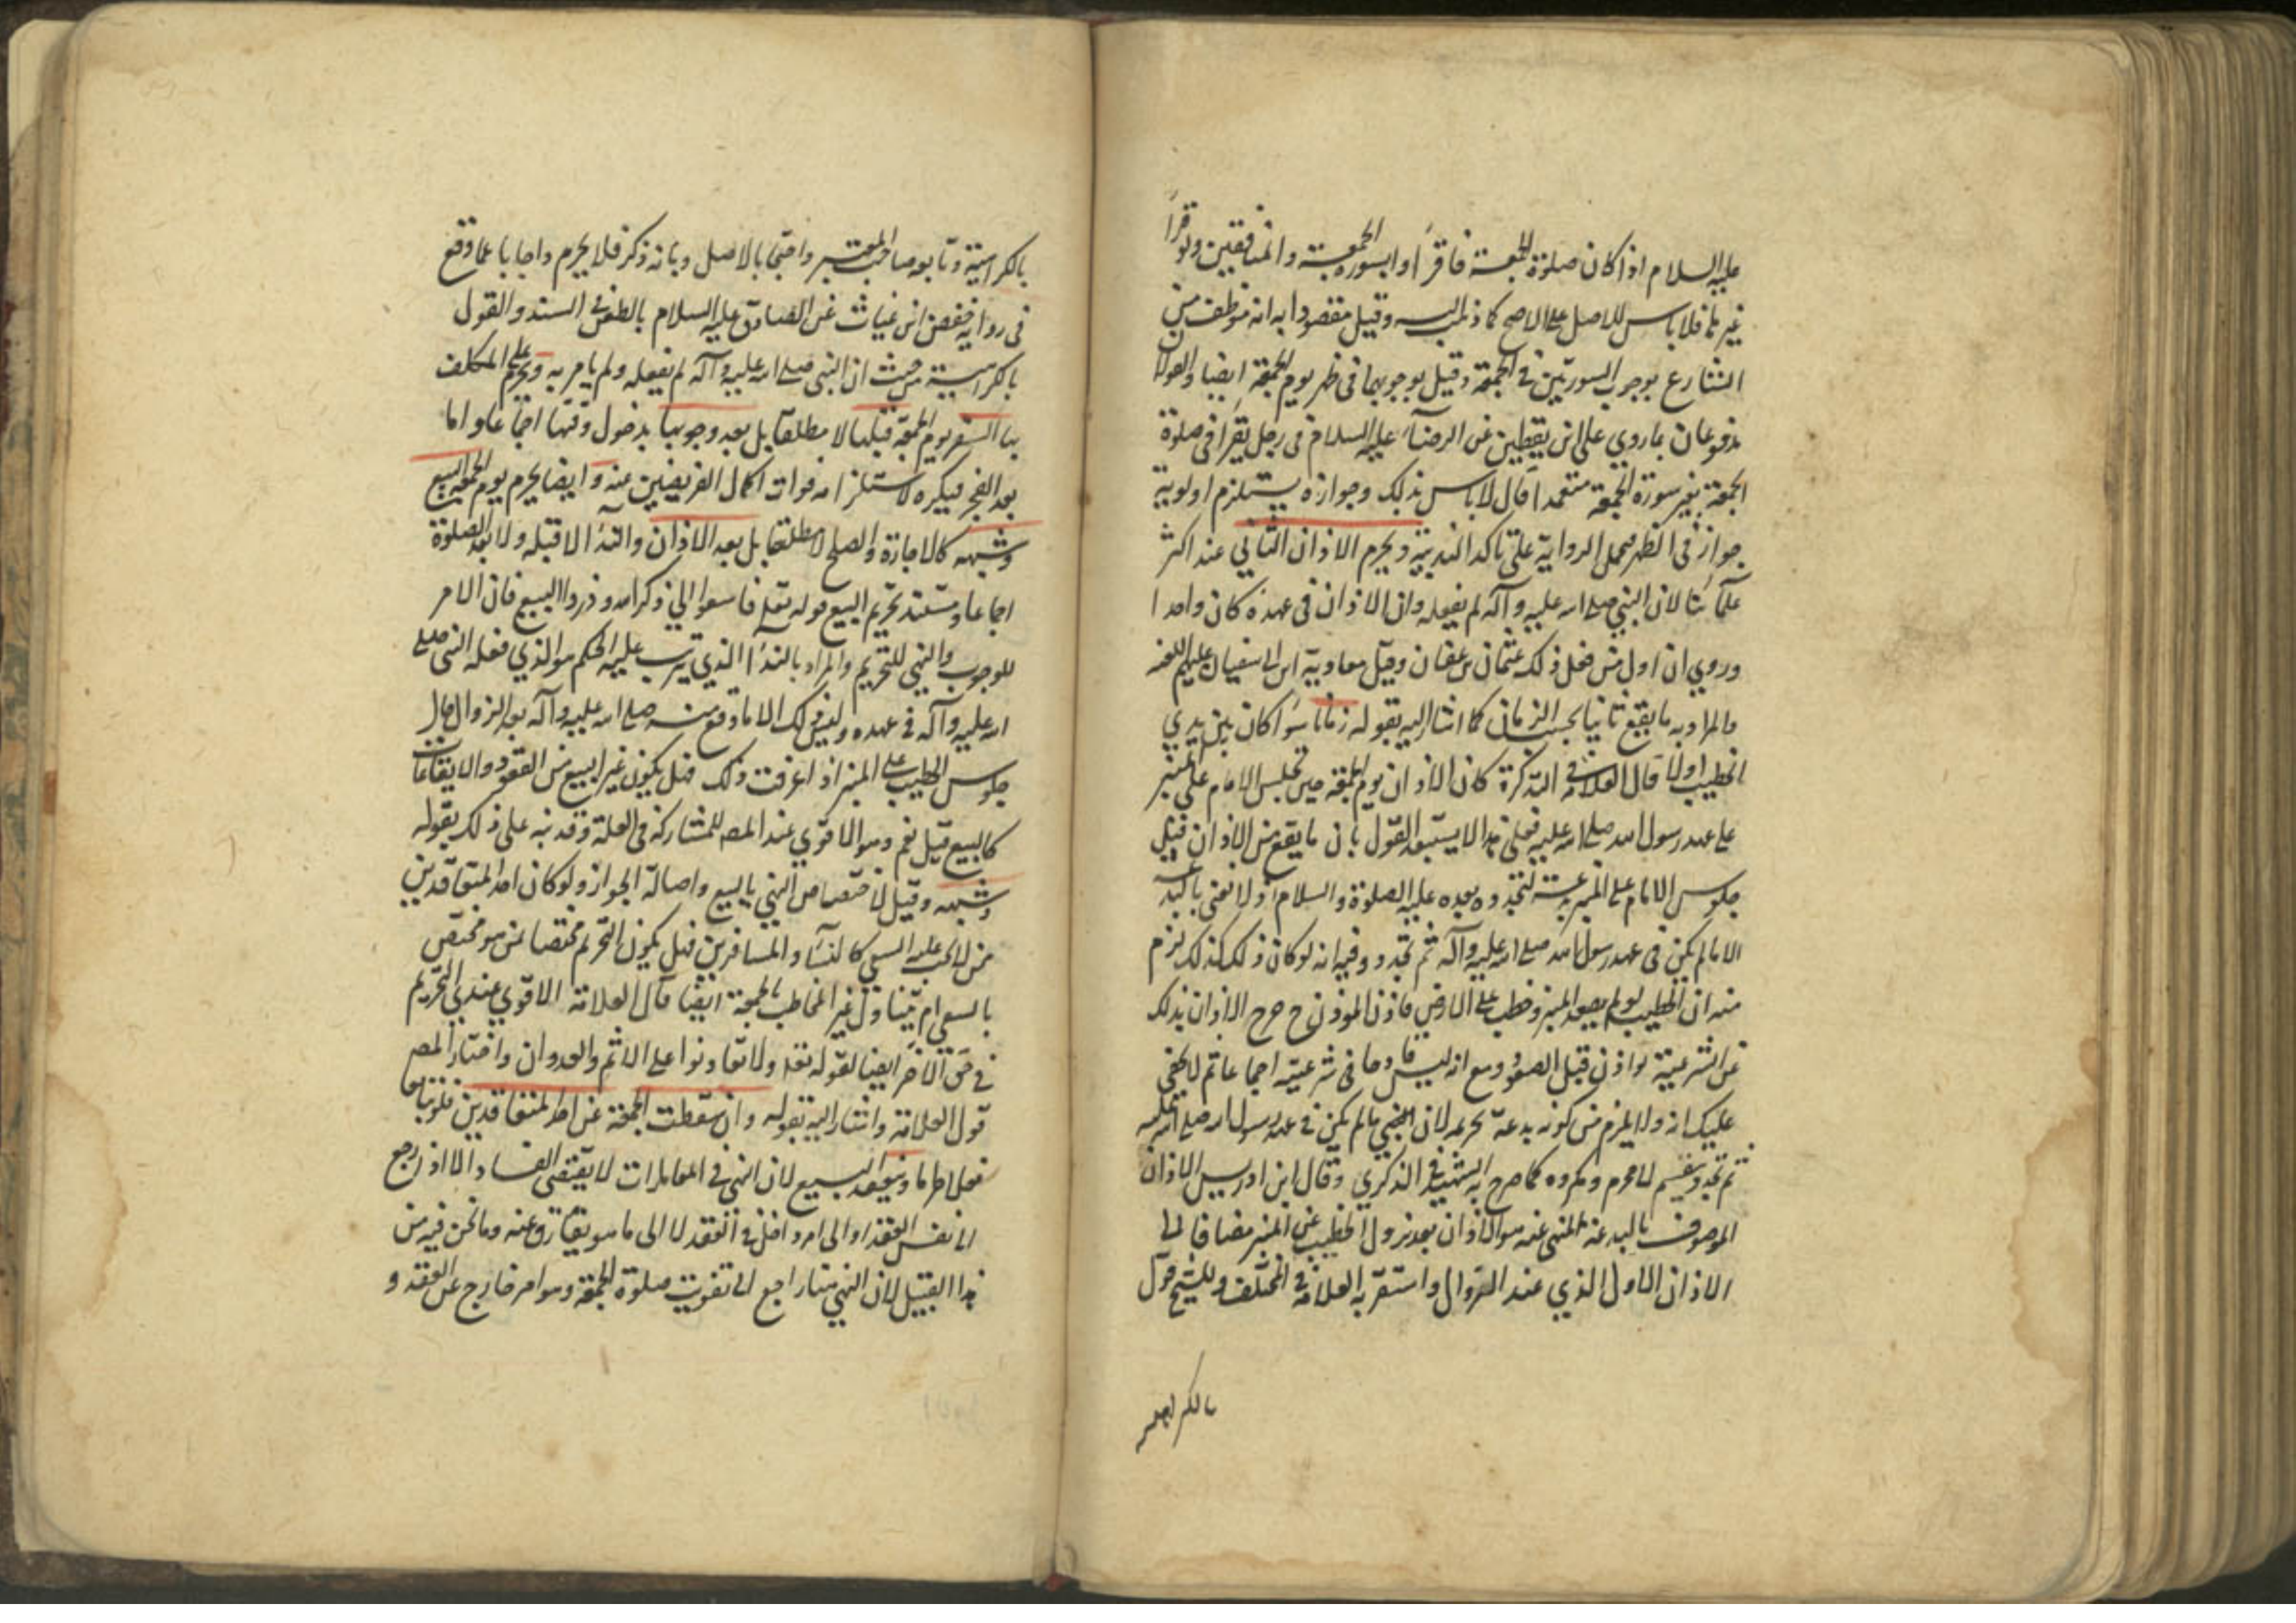 عليه السلام اذا كان صلوة الجمعة فاقرأوا بسورة الجمعة والمنافقين ولو قرأ
غيرهما فلا باس للاصل على الاصح كما ذهب اليه وقيل مقصودا به انه موظف من
الشارع بوجوب السورتين في الجمعة وقيل بوجوبهما في ظهر يوم الجمعة ايضا والقولان
مدفوعان بما روي علي ابن يقطين عن الرضاء عليه السلام في رجل يقرأ في صلوة
الجمعة بغير سورة الجمعة متعمدا قال لا باس بذلك وجوازه يستلزم اولوية
جوازه في الظهر فحمل الرواية على تاكد الندبية ويحرم الاذان الثاني عند اكثر
علمآئنا لان النبي صلى الله عليه وآله لم يفعله وان الاذان في عهده كان واحدا
وروي ان اول من فعل ذلك عثمان بن عفان وقيل معاوية ابن ابي سفيان عليهم اللعنة
والمراد به ما يقع ثانيا بحسب الزمان كما اشار اليه بقوله زمانا سوآ كان بين يدي
الخطيب اولا قال العلامة في التذكرة كان الاذان يوم الجمعة حين يجلس الامام على المنبر
على عهد رسول الله صلى الله عليه فعلى هذا لا يستبعد القول بان ما يقع من الاذان قبل
جلوس الامام على المنبر بدعة لتجدده بعده عليه الصلوة والسلام ولا نعني بالبدعة
الا ما لم يكن في عهد رسول الله صلى الله عليه وآله ثم تجدد وفيه انه لو كان ذلك كذلك لزم
منه ان الخطيب لو لم يصعد المنبر وخطب على الارض فاذن المؤذن ح خرج الاذان بذلك
عن الشرعية لو اذن قبل الصعود مع انه ليس قادحا في شرعيته اجماعا ثم لا يخفى
عليك انه ولا يلزم من كونه بدعة تحريمه لان المعني ما لم يكن في عهد رسول الله صلى الله عليه
ثم تجدد وينقسم لا محرم ومكروه كما صرح به الشهيد في الذكرى وقال ابن ادريس الاذان
الموصوف بالبدعة المنهي عنه هو الاذان بعد نزول الخطيب عن المنبر مضافا الى
الاذان الاول الذي عند الزوال واستقر به العلامة في المختلف وللشيخ قول
بالكراهية
بالكراهية وتابعه صاحب المعتبر واحتجا بالاصل وبانه ذكر فلا يحرم واجابا عما وقع
في رواية حفص ابن غياث عن الصادق عليه السلام بالطعن في السند والقول
بالكراهية من حيث ان النبي صلى الله عليه وآله لم يفعله ولم يامر به ويحرم على المكلف
بها السفر يوم الجمعة قبلها لا مطلقا بل بعد وجوبها بدخول وقتها اجماعا واما
بعد الفجر فيكره لاستلزامه فوات اكمل الفريضين عنه وايضا يحرم يوم الجمعة البيع
وشبهه كالاجارة والصلح لا مطلقا بل بعد الاذان والندآ لا قبله ولا بعد الصلوة
اجماعا ومستند تحريم البيع قوله تعلى فاسعوا الى ذكر الله وذروا البيع فان الامر
للوجوب والنهي للتحريم والمراد بالندآ الذي يترتب عليه الحكم هو الذي فعله النبي صلى
الله عليه وآله في عهده وليس ذلك الا ما وقع منه صلى الله عليه وآله بعد الزوال حال
جلوس الخطيب على المنبر اذا عرفت ذلك فهل يكون غير البيع من العقود والايقاعات
كالبيع قيل نعم وهو الاقوي عند المصـ للمشاركة في العلة وقد نبه على ذلك بقوله
وشبهه وقيل لا لاختصاص النهي بالبيع واصالة الجواز ولو كان احد المتعاقدين
ممن لا يجب عليه السعي كالنسآ والمسافرين فهل يكون التحريم مختصا بمن هو مختص
بالسعي ام يتناول غير المخاطب بالجمعة ايضا قال العلامة الاقوي عندي التحريم
في حق الاخر ايضا لقوله تعلى ولا تعاونوا على الاثم والعدوان واختار المصـ
قول العلامة واشار اليه بقوله وان سقطت الجمعة عن احد المتعاقدين فلو تبايعا
فعلا حراما وينعقد البيع لان النهي في المعاملات لا يقتضي الفساد الا اذا رجع
الى نفس العقد او الى امر داخل في العقد لا الى ما هو يقارق عنه وما نحن فيه من
هذا القبيل لان النهي هنا راجع الى تفويت صلوة الجمعة وهو امر خارج عن العقد و